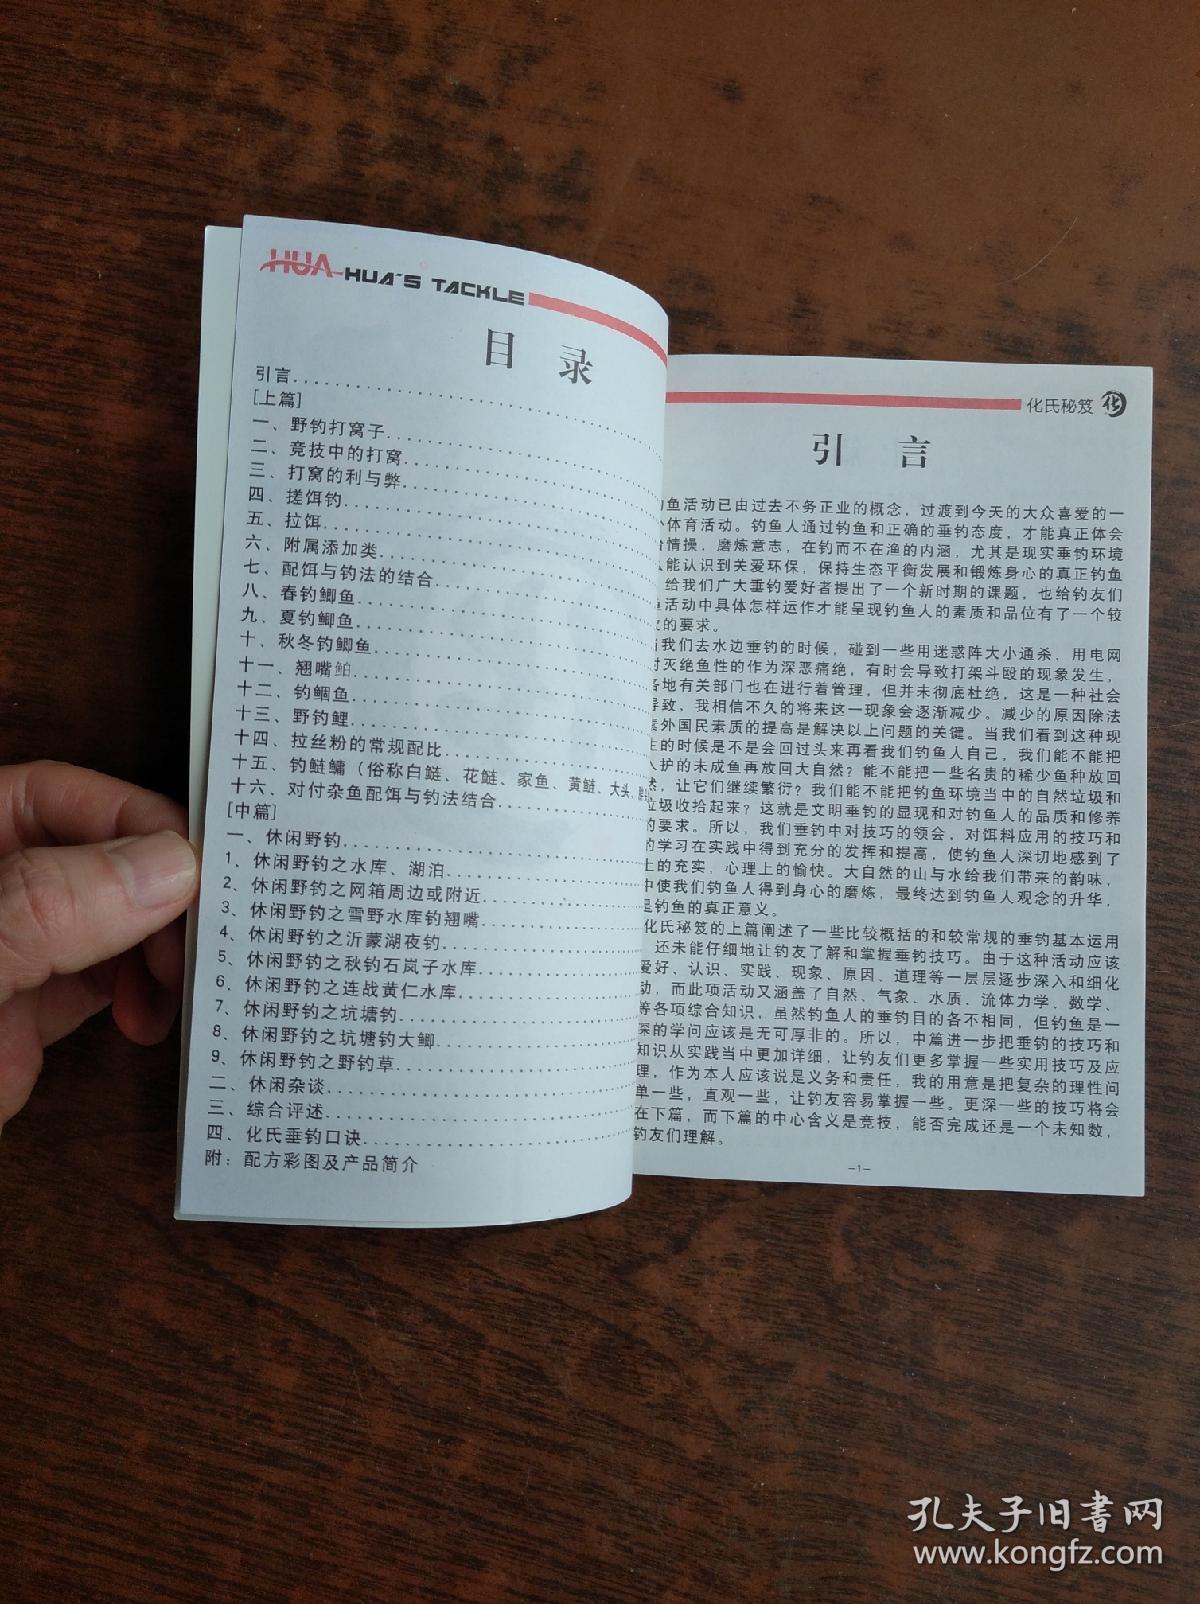 HUA HUA'S TACKLE
目 录
引言
[上篇]
一、野钓打窝子
二、竞技中的打窝
三、打窝的利与弊
四、搓饵钓
五、拉饵
六、附属添加类
七、配饵与钓法的结合
八、春钓鲫鱼
九、夏钓鲫鱼
十、秋冬钓鲫鱼
十一、翘嘴鲌
十二、钓鲴鱼
十三、野钓鲤
十四、拉丝粉的常规配比
十五、钓鲢鳙（俗称白鲢、花鲢、家鱼、黄鲢、大头、
十六、对付杂鱼配饵与钓法结合
[中篇]
一、休闲野钓
1、休闲野钓之水库、湖泊
2、休闲野钓之网箱周边或附近
3、休闲野钓之雪野水库钓翘嘴
4、休闲野钓之沂蒙湖夜钓
5、休闲野钓之秋钓石岚子水库
6、休闲野钓之连战黄仁水库
7、休闲野钓之坑塘钓
8、休闲野钓之坑塘钓大鲫
9、休闲野钓之野钓草
二、休闲杂谈
三、综合评述
四、化氏垂钓口诀
附：配方彩图及产品简介
化氏秘笈 化
引 言
鱼活动已由过去不务正业的概念，过渡到今天的大众喜爱的一
体育活动。钓鱼人通过钓鱼和正确的垂钓态度，才能真正体会
情操，磨炼意志，在钓而不在渔的内涵，尤其是现实垂钓环境
能认识到关爱环保，保持生态平衡发展和锻炼身心的真正钓鱼
给我们广大垂钓爱好者提出了一个新时期的课题，也给钓友们
活动中具体怎样运作才能呈现钓鱼人的素质和品位有了一个较
的要求。
我们去水边垂钓的时候，碰到一些用迷惑阵大小通杀，用电网
灭绝鱼性的作为深恶痛绝，有时会导致打架斗殴的现象发生，
各地有关部门也在进行着管理，但并未彻底杜绝，这是一种社会
导致，我相信不久的将来这一现象会逐渐减少。减少的原因除法
外国民素质的提高是解决以上问题的关键。当我们看到这种现
的时候是不是会回过头来再看我们钓鱼人自己，我们能不能把
护的未成鱼再放回大自然？能不能把一些名贵的稀少鱼种放回
然，让它们继续繁衍？我们能不能把钓鱼环境当中的自然垃圾和
垃圾收拾起来？这就是文明垂钓的显现和对钓鱼人的品质和修养
的要求。所以，我们垂钓中对技巧的领会，对饵料应用的技巧和
的学习在实践中得到充分的发挥和提高，使钓鱼人深切地感到了
上的充实，心理上的愉快。大自然的山与水给我们带来的韵味，
中使我们钓鱼人得到身心的磨炼，最终达到钓鱼人观念的升华，
是钓鱼的真正意义。
化氏秘笈的上篇阐述了一些比较概括的和较常规的垂钓基本运用
还未能仔细地让钓友了解和掌握垂钓技巧。由于这种活动应该
爱好、认识、实践、现象、原因、道理等一层层逐步深入和细化
动，而此项活动又涵盖了自然、气象、水质、流体力学、数学、
等各项综合知识，虽然钓鱼人的垂钓目的各不相同，但钓鱼是一
深的学问应该是无可厚非的。所以，中篇进一步把垂钓的技巧和
知识从实践当中更加详细，让钓友们更多掌握一些实用技巧及应
理，作为本人应该说是义务和责任，我的用意是把复杂的理性问
单一些，直观一些，让钓友容易掌握一些。更深一些的技巧将会
在下篇，而下篇的中心含义是竞技，能否完成还是一个未知数，
钓友们理解。
-1-
孔夫子旧书网
www.kongfz.com